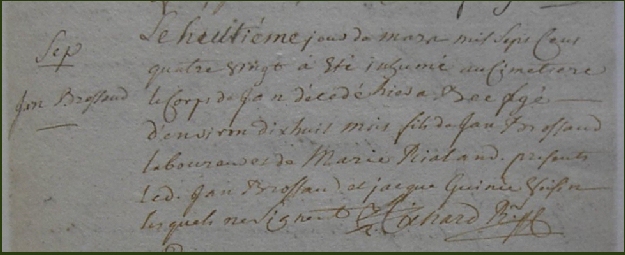 Sep
Jan Brossaud
Le heutiéme jour de mars mil sept cens
quatre vingt a été inhumé au cimetiere
le corps de Jan décédé hier a agé
d'environ dix huit mois fils de Jan Brossaud
laboureur et de Marie Rialand. presents
led. Jan Brossaud et jacque Guinée voisin
lesquels ne signent